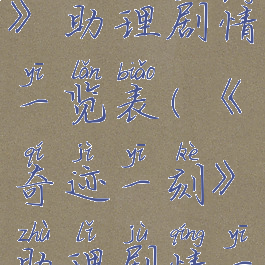 》助理剧情
yī lǎn biǎo
一览表（《
qí jì yī kè
奇迹一刻》
zhù lǐ jù qíng yī
助理剧情一